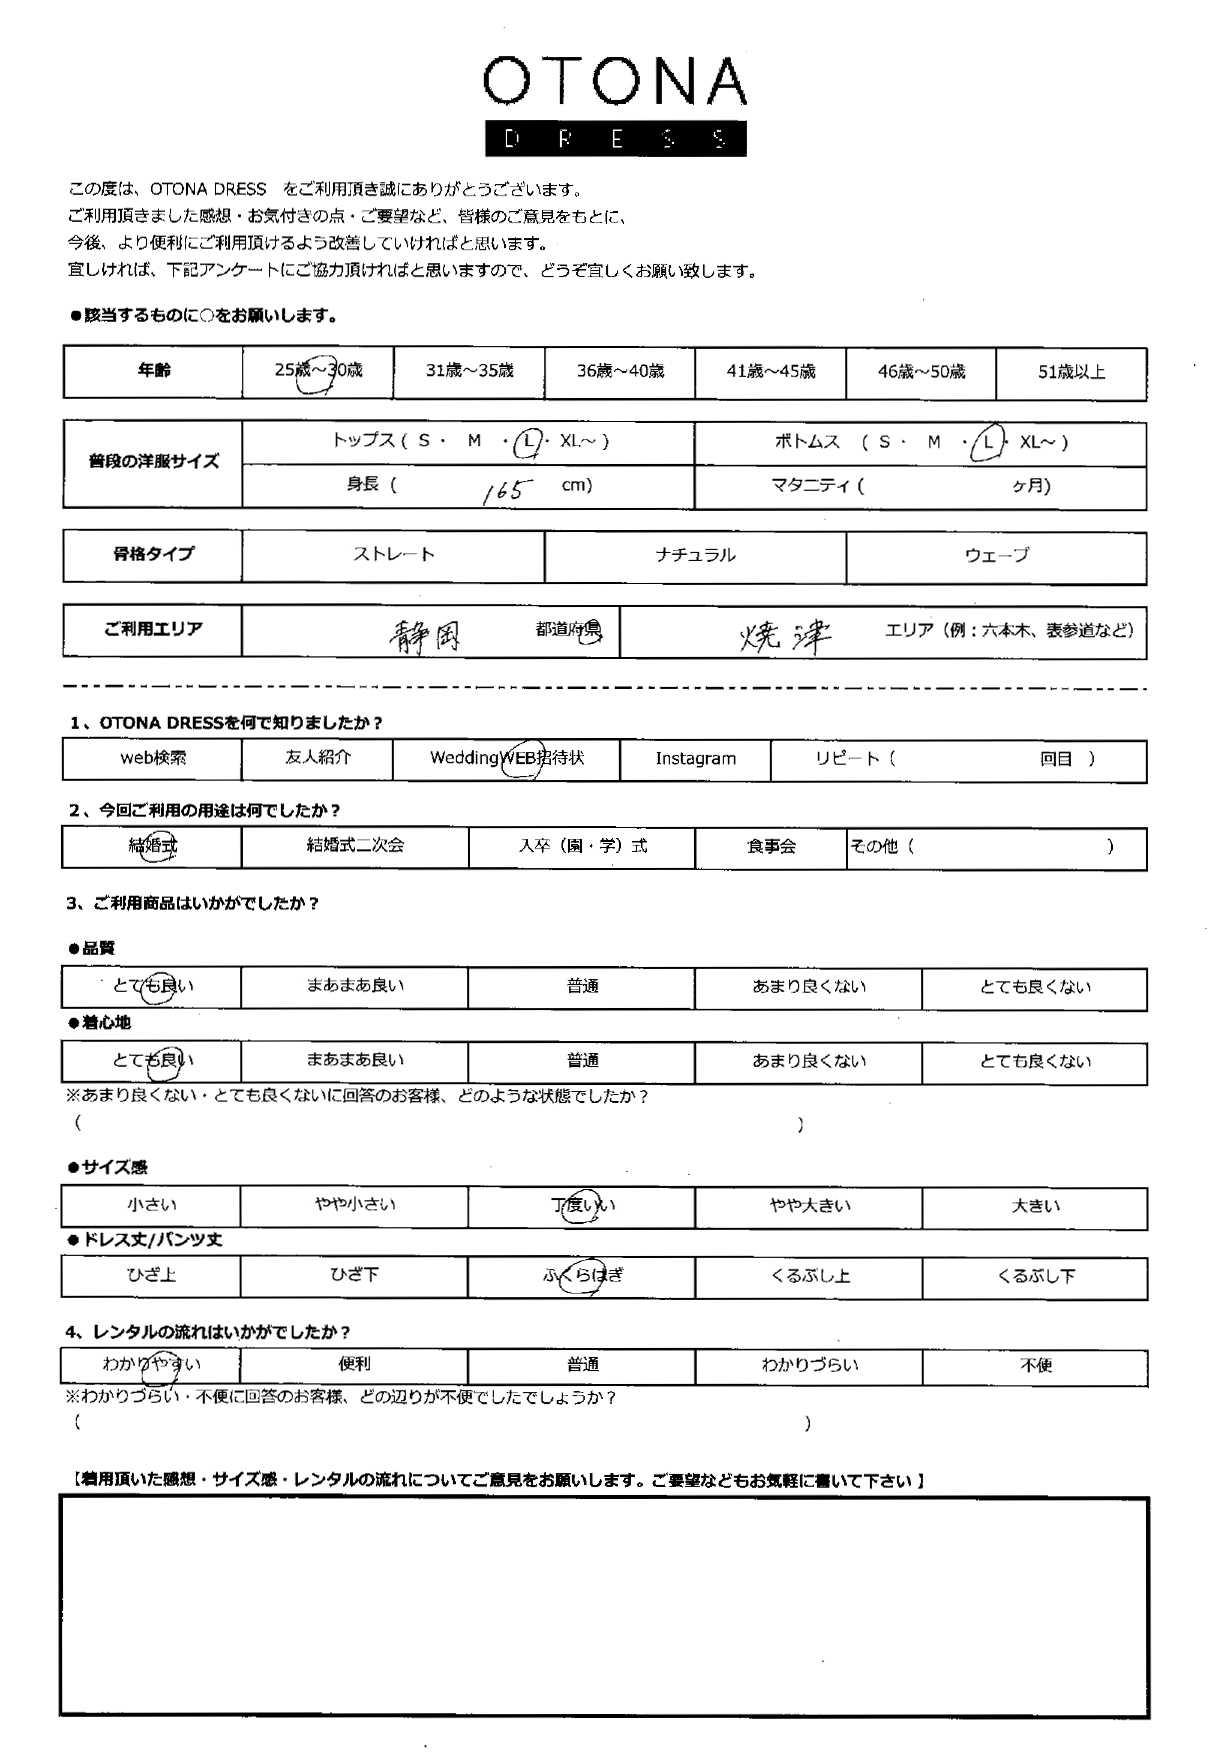 OTONA
DRESS
この度は、OTONA DRESS　をご利用頂き誠にありがとうございます。
ご利用頂きました感想・お気付きの点・ご要望など、皆様のご意見をもとに、
今後、より便利にご利用頂けるよう改善していければと思います。
宜しければ、下記アンケートにご協力頂ければと思いますので、どうぞ宜しくお願い致します。
●該当するものに○をお願いします。
年齢 25歳～30歳 31歳～35歳 36歳～40歳 41歳～45歳 46歳～50歳 51歳以上
普段の洋服サイズ トップス ( S ・ M ・ L ・ XL～ ) ボトムス ( S ・ M ・ L ・ XL～ )
身長 ( 165 cm) マタニティ ( ヶ月)
骨格タイプ ストレート ナチュラル ウェーブ
ご利用エリア 静岡 都道府県 焼津 エリア（例：六本木、表参道など）
1、OTONA DRESSを何で知りましたか？
web検索 友人紹介 WeddingWEB招待状 Instagram リピート（ 回目 ）
2、今回ご利用の用途は何でしたか？
結婚式 結婚式二次会 入卒（園・学）式 食事会 その他（ ）
3、ご利用商品はいかがでしたか？
●品質
とても良い まあまあ良い 普通 あまり良くない とても良くない
●着心地
とても良い まあまあ良い 普通 あまり良くない とても良くない
※あまり良くない・とても良くないに回答のお客様、どのような状態でしたか？
（ ）
●サイズ感
小さい やや小さい 丁度いい やや大きい 大きい
●ドレス丈/パンツ丈
ひざ上 ひざ下 ふくらはぎ くるぶし上 くるぶし下
4、レンタルの流れはいかがでしたか？
わかりやすい 便利 普通 わかりづらい 不便
※わかりづらい・不便に回答のお客様、どの辺りが不便でしたでしょうか？
（ ）
【着用頂いた感想・サイズ感・レンタルの流れについてご意見をお願いします。ご要望などもお気軽に書いて下さい】